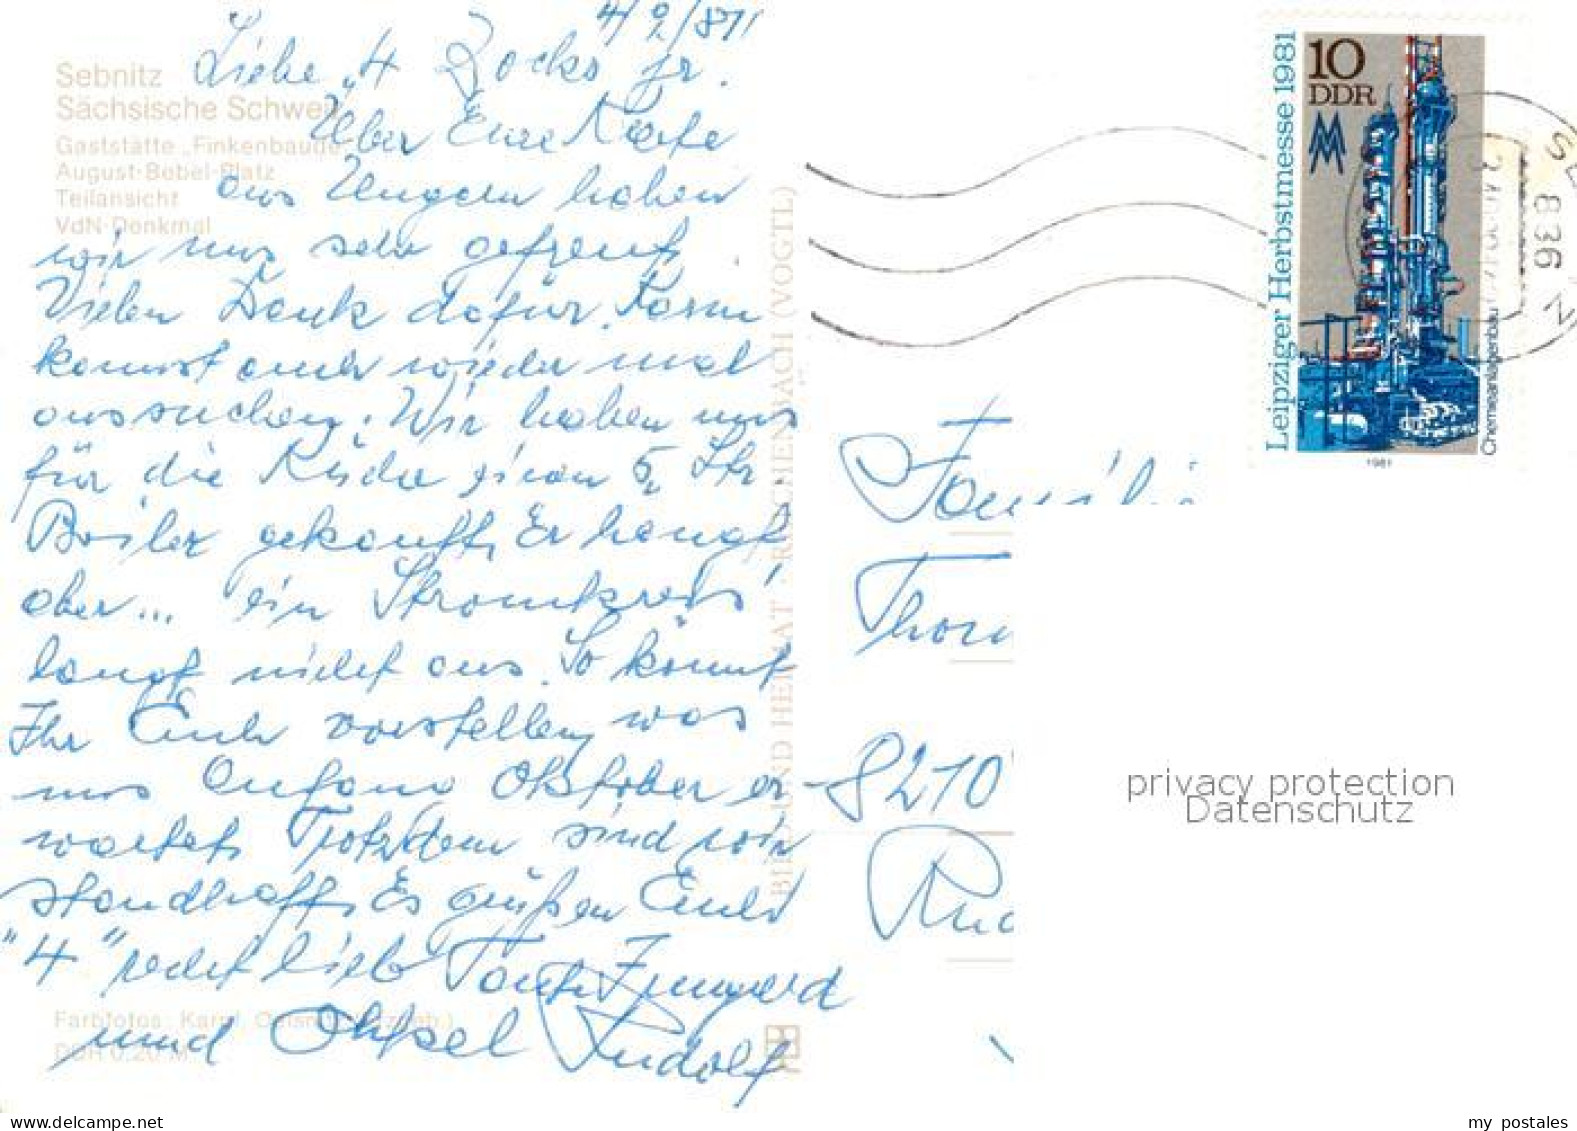 4/9/81
Liebe "4 Zocks jr.
Sebnitz
Sächsische Schweiz
Über Eure Karte
Gaststätte „Finkenbaude"
August-Bebel-Platz
aus Ungarn haben
Teilansicht
VdN-Denkmal
wir uns sehr gefreut.
Vielen Dank dafür.
kommst auch wieder mal
aussuchen. Wir haben uns
für die einen 5 Ltr
Boiler gekauft, Er hängt
aber... ein Stromkreis
langt nicht aus. So könnt
Ihr Euch vorstellen, was
uns Anfang Oktober er-
wartet, Trotzdem sind wir
standhaft, Es grüßen Euch
"4" recht lieb Tante Irmgard
und Onkel Rudolf
Farbfotos: Karpf,
DDR 0,20 M
BILD UND HEIMAT REICHENBACH (VOGTL)
Leipziger Herbstmesse 1981
10
DDR
Chemieanlagenbau
1981
836
Familie
Thom
8210
privacy protection
Datenschutz
my postales
www.delcampe.net